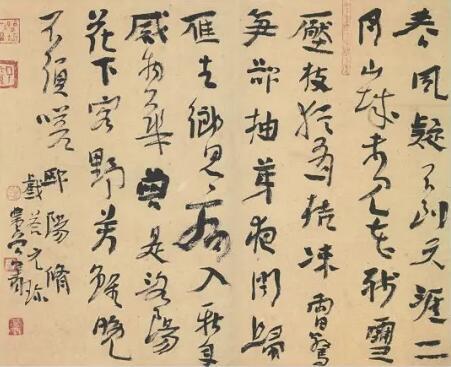 春風疑不到天涯二
月山城未見花殘雪
壓枝猶有桔凍雷驚
筍欲抽芽夜聞歸
雁生鄉思病入新年
感物華曾是洛陽
花下客野芳雖晚
不須嗟 歐陽脩
戲答元珍